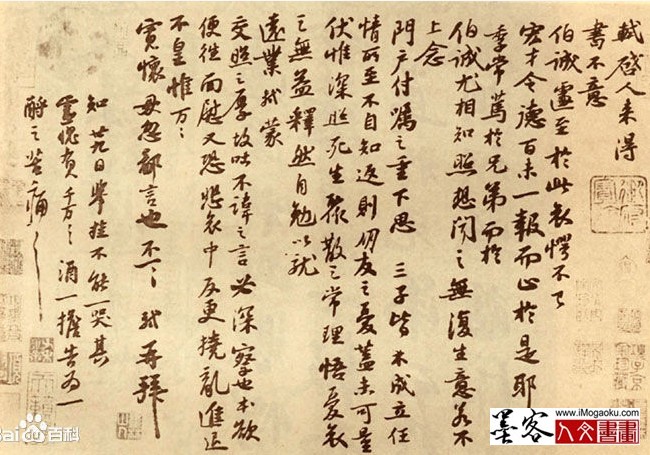 軾啓人來得
書不意
伯誠遽至於此哀愕不已
宏才令德百未一報而止於是耶
季常篤於兄弟而於
伯誠尤相知照想聞之無復生意若不
上念
門户付囑之重下思三子皆未成立任
情所至不自知返則朋友之憂蓋未可量
伏惟深照死生聚散之常理悟憂哀
之無益釋然自勉以就
遠業軾蒙
交照之厚故吐不諱之言必深察也本欲
便往面慰又恐悲哀中反更撓亂進退
不皇惟万〻
寬懷毋忽鄙言也不一〻軾再拜
知廿九日舉掛不能一哭其
靈愧負千万〻酒一擔告為一
酹之苦痛〻
Bai 百科
www.iMogaoku.com
墨客
人文書畫